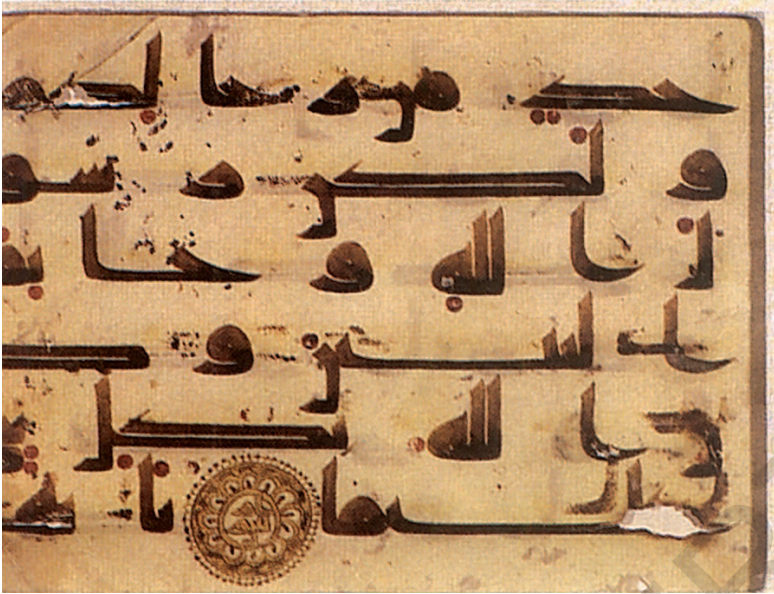 حد من رجالكم
و لكن رسو
ل الله و خاتم ا
لنبين و كا
ن الله بكل شى
عليما يا يها